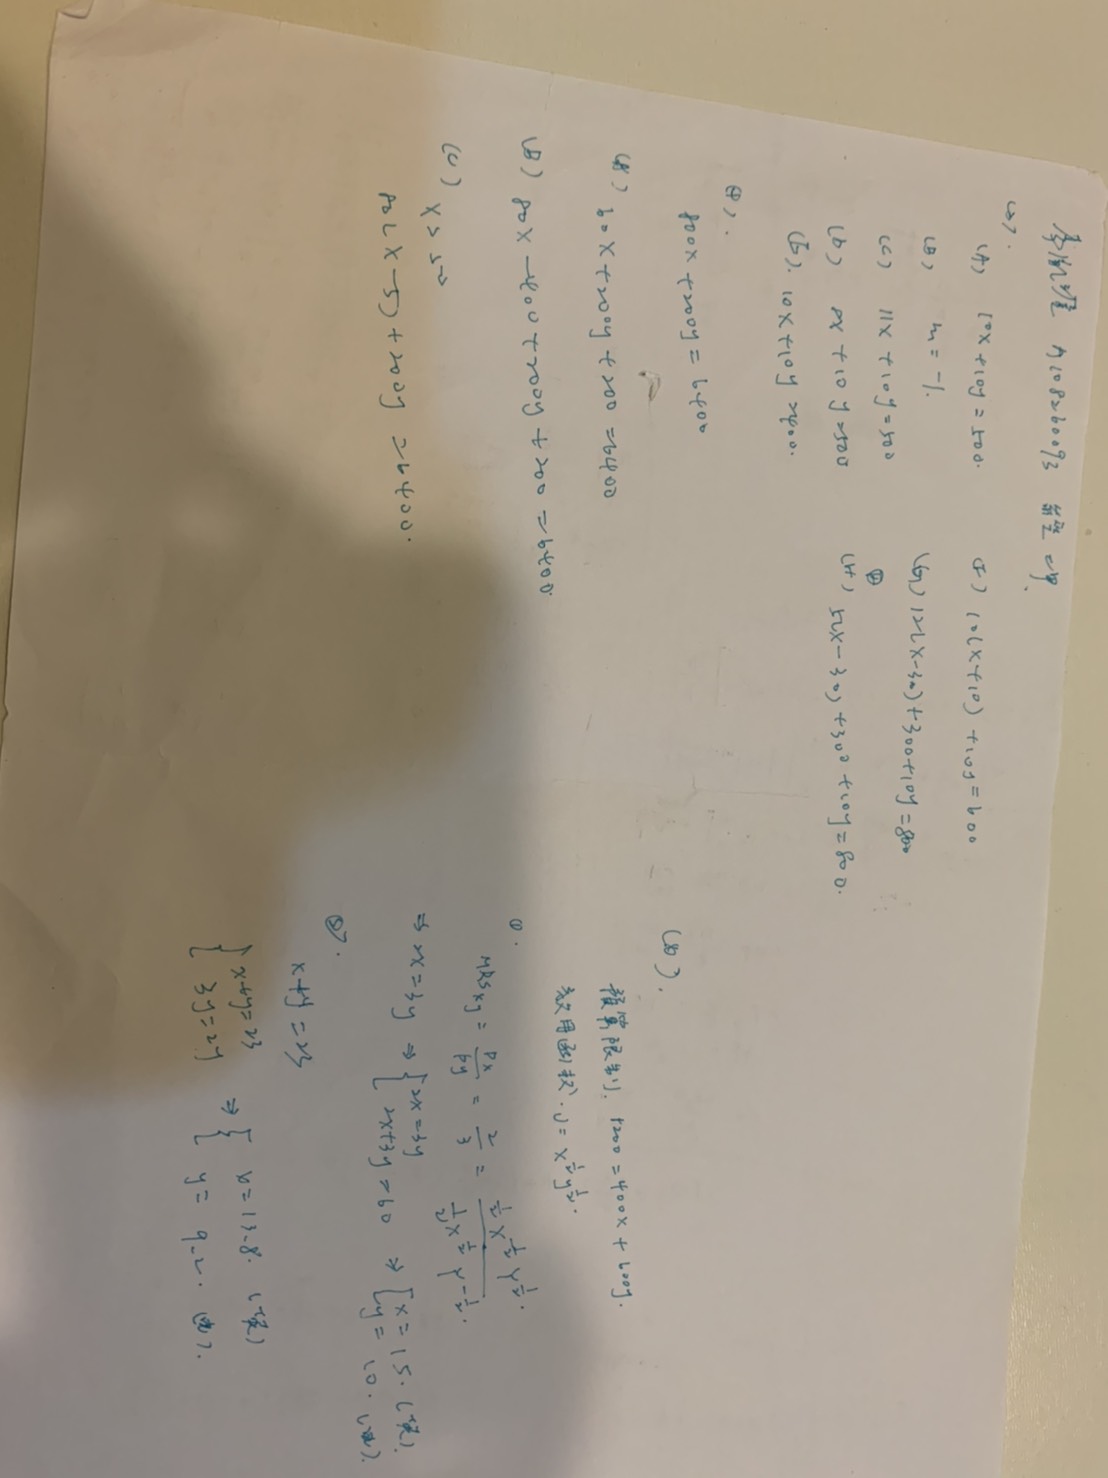 A108260093
(A) 10x+10y=500.
(B) m=-1.
(C) 11x+10y=500
(D) 8x+10y=500
(E). 10x+10y=400.
(F) 10(x+10)+10y=600
(G) 12(x-30)+300+10y=800
(H) 5(x-30)+300+10y=800.
800x+200y=6400
(A) 60x+200y+200=6400
(B) 80x-400+200y+200=6400
(C) x≤5
80(x-5)+200y=6400.
預算限制. 1200=400x+600y.
效用函數. U=x^½y^½.
MRSxy = Px/Py = 2/3 = ½x^-½y^½ / ½x^½y^-½.
⇒ 2x=3y ⇒ { 2x=3y
2x+3y=60 ⇒ { x=15.
y=10.
x+y=23
{ x+y=23
3y=2x ⇒ { x=13.8.
y=9.2.